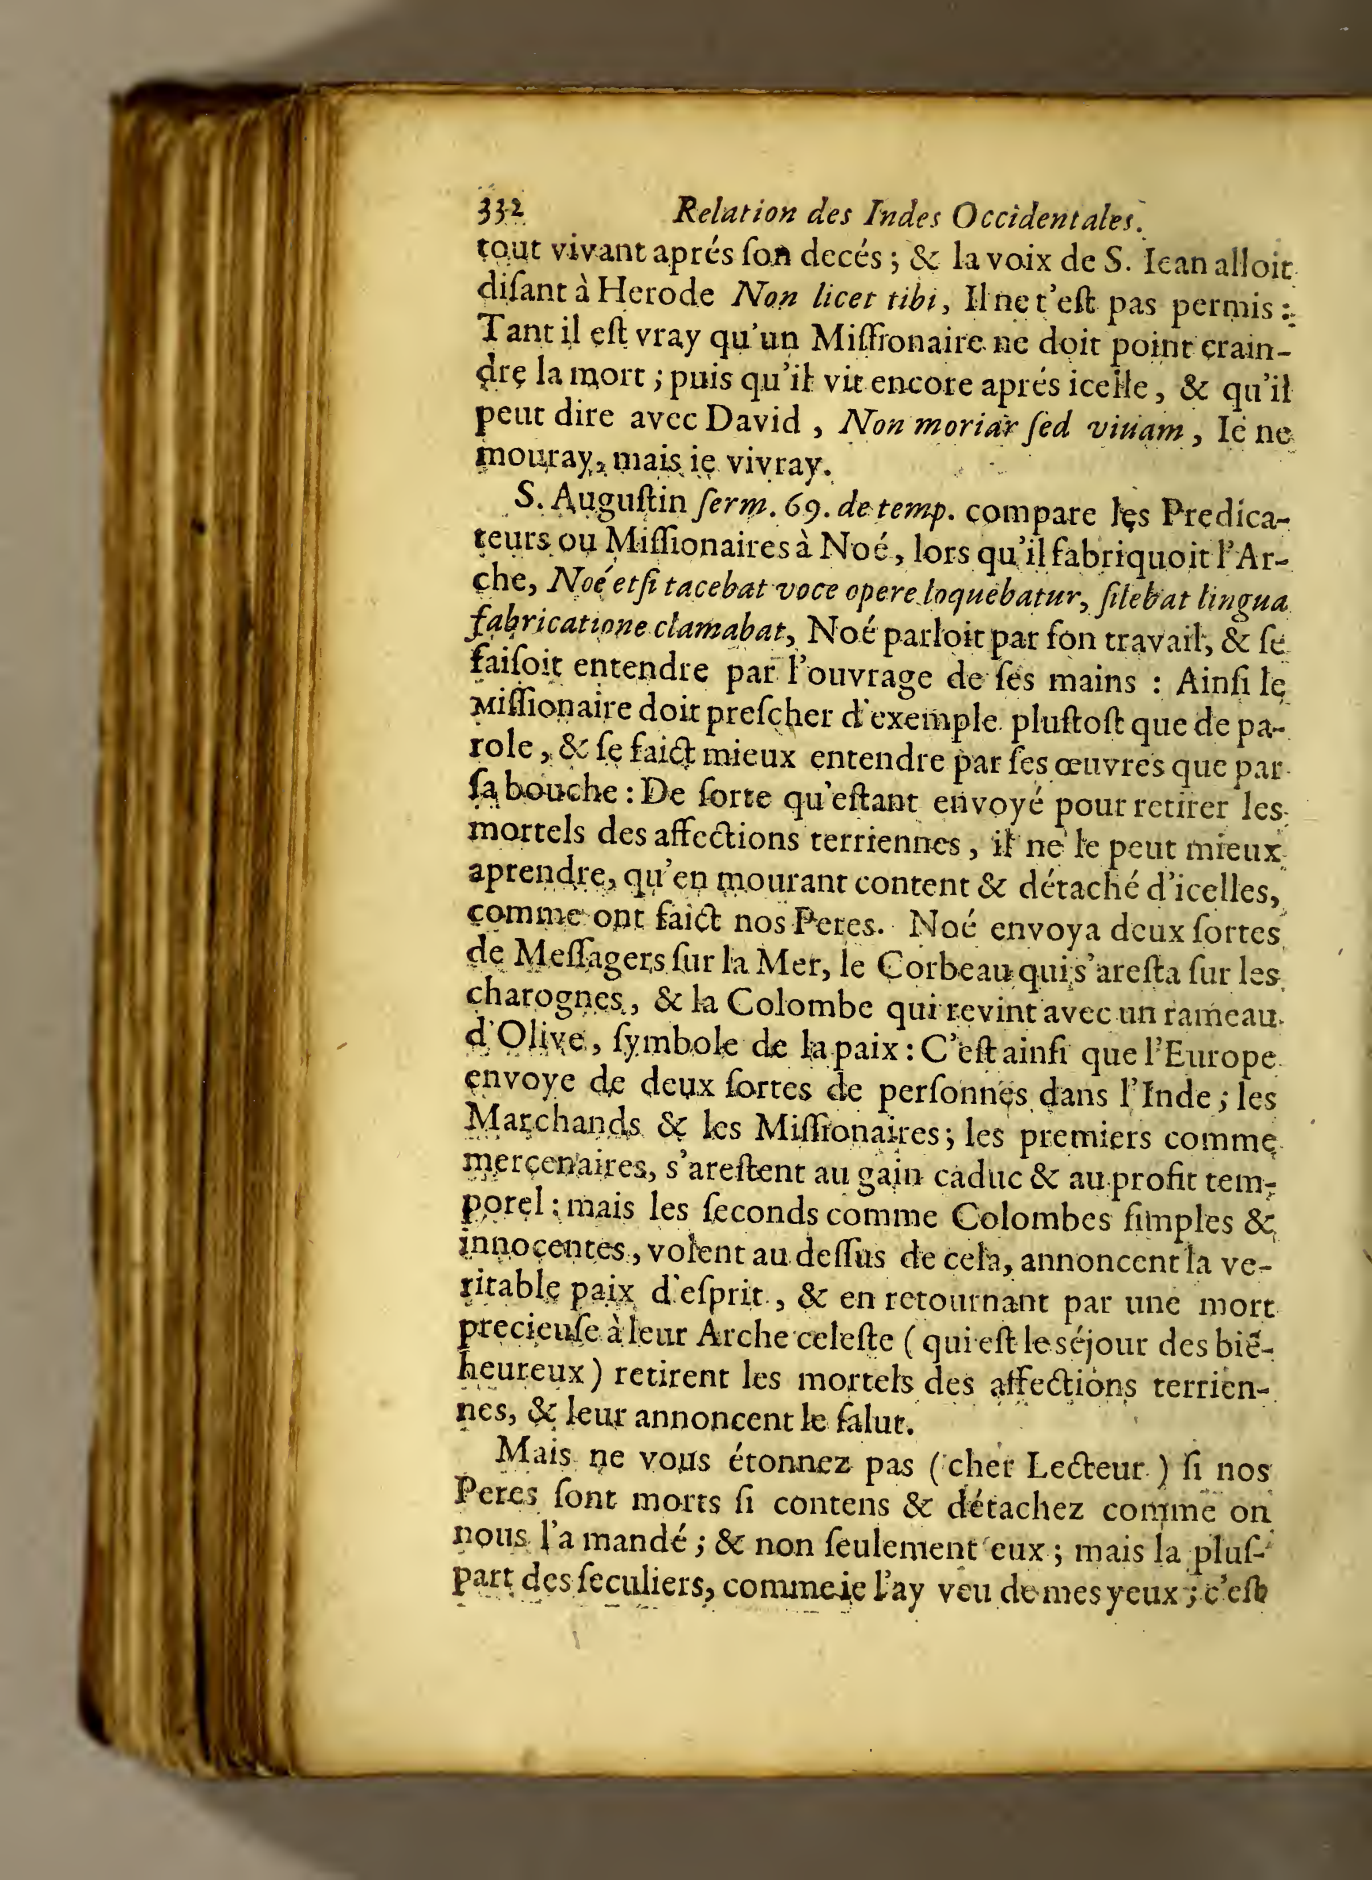 332 Relation des Indes Occidentales.
tout vivant aprés ſon decés ; & la voix de S. Iean alloit
diſant à Herode Non licet tibi, Il ne t'eſt pas permis :
Tant il eſt vray qu'un Miſſionaire ne doit point crain-
dre la mort ; puis qu'il vit encore aprés icelle, & qu'il
peut dire avec David , Non moriar ſed viuam , Ie ne
mouray, mais ie vivray.
S. Auguſtin ſerm. 69. de temp. compare les Predica-
teurs ou Miſſionaires à Noé, lors qu'il fabriquoit l'Ar-
che, Noé etſi tacebat voce opere loquebatur, ſilebat lingua
fabricatione clamabat, Noé parloit par ſon travail, & ſe
faiſoit entendre par l'ouvrage de ſes mains : Ainſi le
Miſſionaire doit preſcher d'exemple pluſtoſt que de pa-
role, & ſe faict mieux entendre par ſes œuvres que par
ſa bouche : De ſorte qu'eſtant envoyé pour retirer les
mortels des affections terriennes , il ne le peut mieux
aprendre, qu'en mourant content & détaché d'icelles,
comme ont faict nos Peres. Noé envoya deux ſortes
de Meſſagers ſur la Mer, le Corbeau qui s'areſta ſur les
charognes, & la Colombe qui revint avec un rameau
d'Olive, ſymbole de la paix : C'eſt ainſi que l'Europe
envoye de deux ſortes de perſonnes dans l'Inde ; les
Marchands & les Miſſionaires ; les premiers comme
mercenaires, s'areſtent au gain caduc & au profit tem-
porel ; mais les ſeconds comme Colombes ſimples &
innocentes, volent au deſſus de cela, annoncent la ve-
ritable paix d'eſprit , & en retournant par une mort
precieuſe à leur Arche celeſte ( qui eſt le séjour des biẽ-
heureux ) retirent les mortels des affections terrien-
nes, & leur annoncent le ſalut.
Mais ne vous étonnez pas ( cher Lecteur ) ſi nos
Peres ſont morts ſi contens & détachez comme on
nous l'a mandé ; & non ſeulement eux ; mais la pluſ-
part des ſeculiers, comme ie l'ay veu de mes yeux ; c'eſt